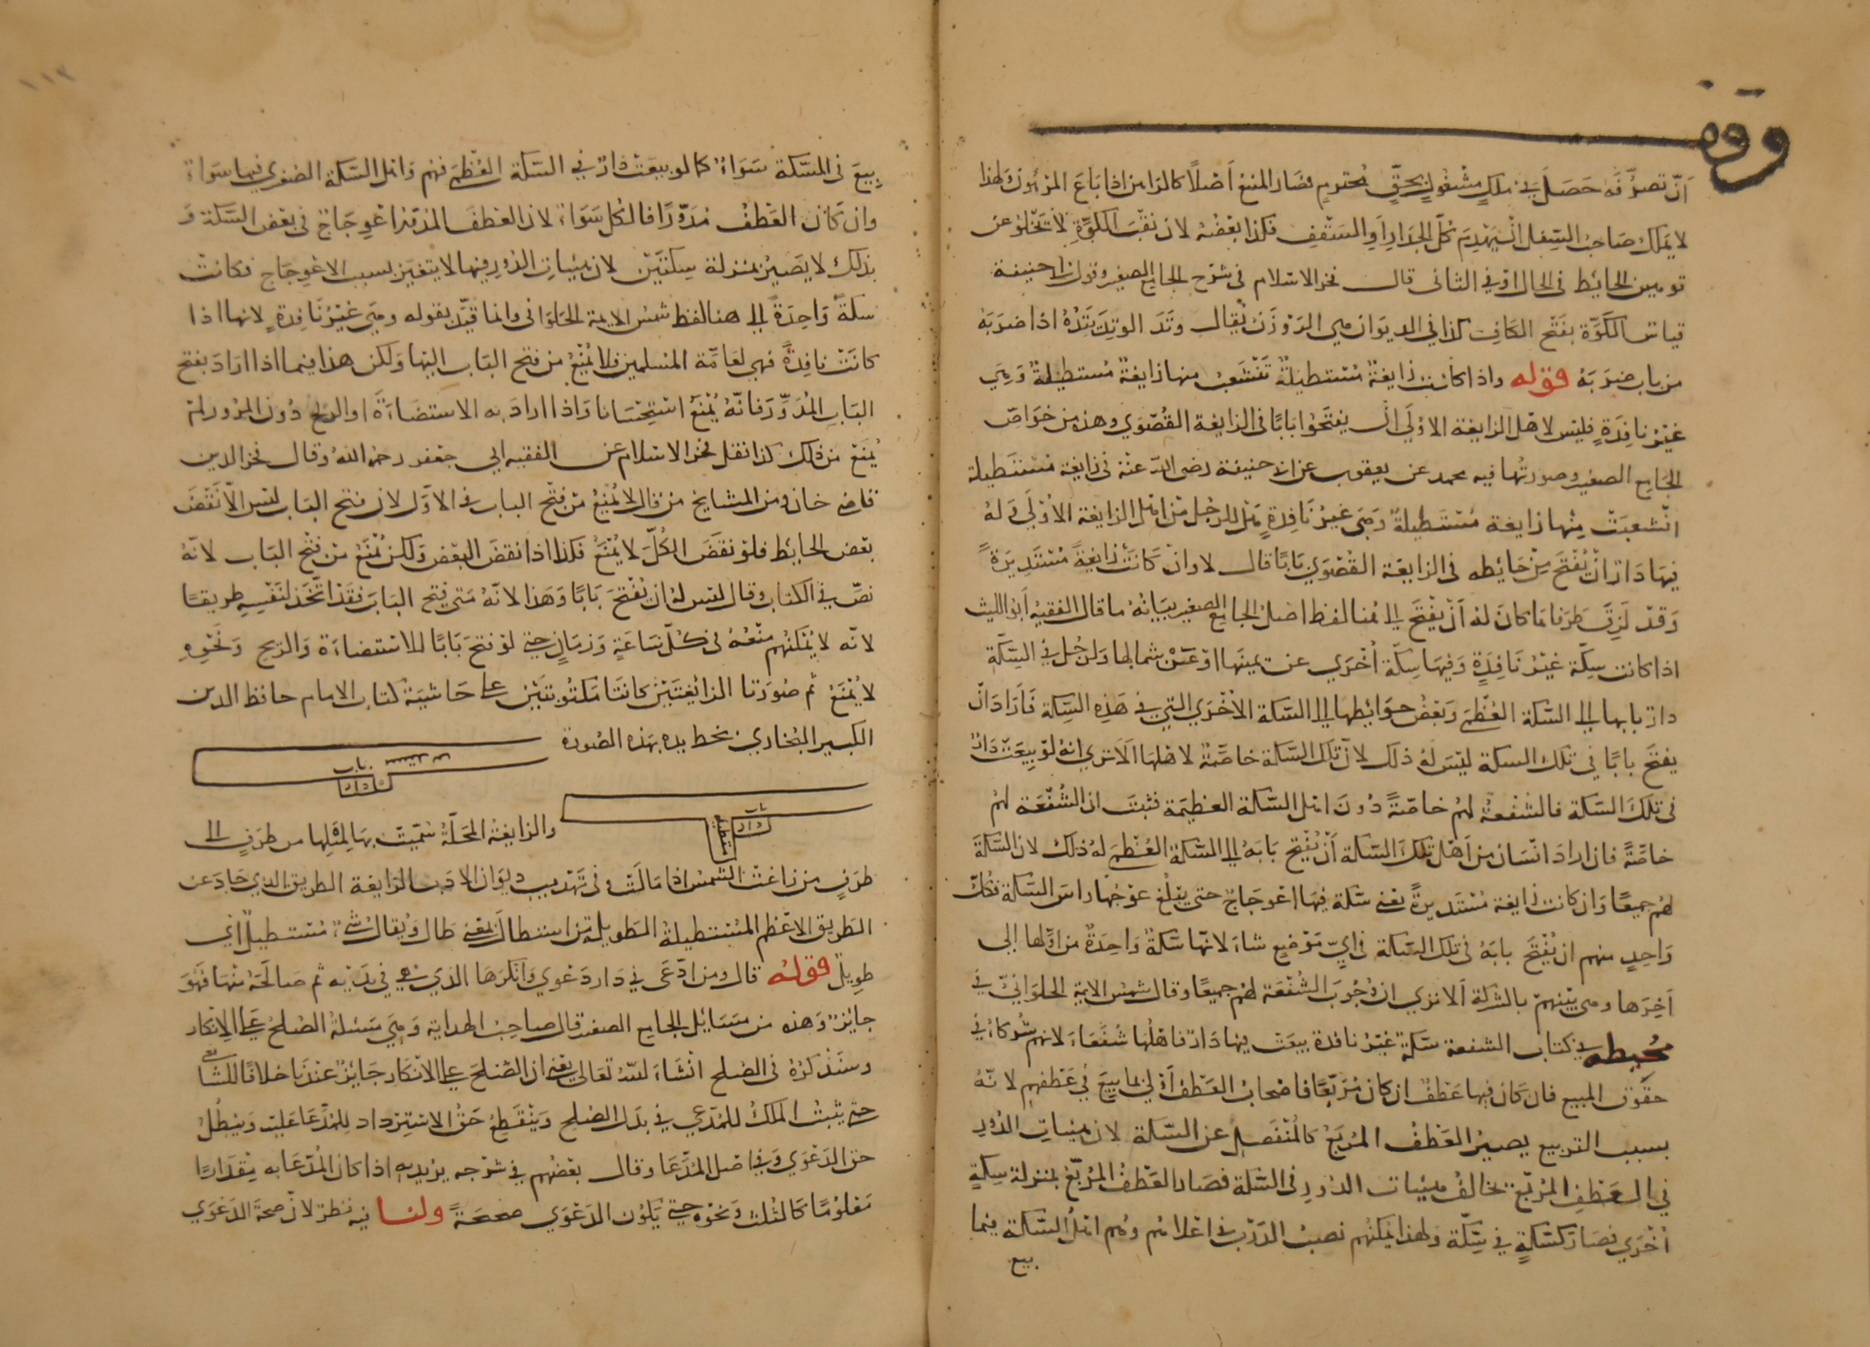 وقف
أن تصرفه حصل في ملك مشغول بحق محترم فصار المنع أصلا كالراهن إذا باع المرهون ولهذا
لا يملك صاحب السفل أن يهدم كل الجدار أو السقف فكذا بعضه لأن نقب الكوة لا تخلو عن
توهين الحائط في الحال أو في الثاني قال فخر الإسلام في شرح الجامع الصغير وقول أبي حنيفة
قياس الكوة بفتح الكاف كذا في الديوان هي الروزن يقال وتد الوتد يتده إذا ضربه
من باب ضربه قوله وإذا كانت زايغة مستطيلة تنشعب منها زايغة مستطيلة وهي
غير نافذة فليس لأهل الزايغة الأولى أن يفتحوا بابا في الزايغة القصوى وهذه من خواص
الجامع الصغير وصورتها فيه محمد عن يعقوب عن أبي حنيفة رضي الله عنه في زايغة مستطيلة
انشعبت منها زايغة مستطيلة وهي غير نافذة هل للرجل من أهل الزايغة الأولى وله
فيها دار أن يفتح من حائطه في الزايغة القصوى بابا قال لا وإن كانت زايغة مستديرة
وقد لزق طرفاها كان له أن يفتح إلى هنا لفظ أصل الجامع الصغير بيانه ما قال الفقيه أبو الليث
إذا كانت سكة غير نافذة وفيها سكة أخرى عن يمينها أو عن شمالها ولرجل في السكة
دار بابها إلى السكة العظمى وبعض حوائطها إلى السكة الأخرى التي في هذه السكة فأراد أن
يفتح بابا في تلك السكة ليس له ذلك لأن تلك السكة خاصة لأهلها ألا ترى أنه لو بيعت دار
في تلك السكة فالشفعة لهم خاصة دون أهل السكة العظيمة فثبت أن الشفعة لهم
خاصة فإن أراد إنسان من أهل تلك السكة أن يفتح بابه إلى السكة العظمى له ذلك لأن السكة
لهم جميعا وإن كانت زايغة مستديرة يعني سكة فيها اعوجاج حتى يبلغ عوجها رأس السكة فلكل
واحد منهم أن يفتح بابه في تلك السكة في أي موضع شاء لأنها سكة واحدة من أولها إلى
آخرها وهي بينهم بالشركة ألا ترى أن وجوب الشفعة لهم جميعا وقال شمس الأيمة الحلواني في
محيطه في كتاب الشفعة سكة غير نافذة بيعت فيها دار فأهلها شفعاء لأنهم شركاء في
حقوق المبيع فإن كان فيها عطف إن كان مربعا فأصحاب العطف أولى بما بيع في عطفهم لأنه
بسبب التربيع يصير العطف المربع كالمنفصل عن السكة لأن هيئات الدور
في العطف المربع تخالف هيئات الدور في السكة فصار العطف المربع بمنزلة سكة
أخرى فصار كسكة في سكة ولهذا يمكنهم نصب الدرب في أعلاهم وهم أهل السكة فيما
بيع
بيع في السكة سواء كما لو بيعت دار في السكة العظمى فهم وأهل السكة الصغرى فيها سواء
وإن كان العطف مدورا فالكل سواء لأن العطف المدور اعوجاج في بعض السكة و
بذلك لا يصير بمنزلة سكتين لأن هيئات الدور فيها لا يتغير بسبب الاعوجاج فكانت
سكة واحدة إلى هنا لفظ شمس الأيمة الحلواني وإنما قيد بقوله وهي غير نافذة لأنها إذا
كانت نافذة فهي لعامة المسلمين فلا يمنع من فتح الباب إليها ولكن هذا فيما إذا أراد بفتح
الباب المرور فإنه يمنع استحسانا وإذا أراد به الاستضاءة أو الريح دون المرور لم
يمنع من ذلك كذا نقل فخر الإسلام عن الفقيه أبي جعفر رحمه الله وقال فخر الدين
قاضي خان ومن المشايخ من قال لا يمنع من فتح الباب في الأول لأن فتح الباب ليس إلا نقض
بعض الحائط فلو نقض الكل لا يمنع فكذا إذا نقض البعض ولكن يمنع من فتح الباب لأنه
نص في الكتاب وقال ليس له أن يفتح بابا وهذا لأنه متى فتح الباب فقد اتخذ لنفسه طريقا
لأنه لا يمكنهم منعه في كل ساعة وزمان حتى لو فتح بابا للاستضاءة والريح ونحوه
لا يمنع ثم صورتا الزايغتين كانتا مكتوبتين على حاشية كتاب الإمام حافظ الدين
الكبير البخاري بخط يده بهذه الصورة
باب
دار
باب
دار
والزايغة المحلة سميت بها لميلها من طرف إلى
طرف من زاغت الشمس إذا مالت وفي تهذيب ديوان الأدب الزايغة الطريق الذي حاد عن
الطريق الأعظم المستطيلة الطويلة من استطال بمعنى طال ويقال شيء مستطيل أي
طويل قوله قال ومن ادعى في دار دعوى وأنكرها الذي هي في يديه ثم صالحه منها فهو
جائز وهذه من مسائل الجامع الصغير قال صاحب الهداية وهي مسئلة الصلح على الإنكار
وسنذكره في الصلح إن شاء الله تعالى يعني أن الصلح على الإنكار جائز عندنا خلافا للشافعي
حتى يثبت الملك للمدعي في بدل الصلح وينقطع حق الاسترداد للمدعا عليه ويبطل
حق الدعوى في أصل المدعا وقال بعضهم في شرحه يريد به إذا كان المدعا به مقدارا
معلوما كالثلث ونحوه حتى يكون الدعوى صحيحة ولنا فيه نظر لأن صحة الدعوى